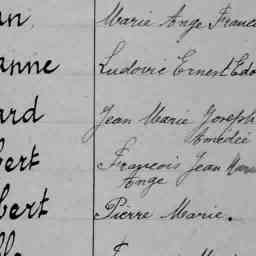 an Marie Ange Franc
anne Ludovic Ernest Edo
ard Jean Marie Joseph
Amédée
bert François Jean Marie
Ange
bert Pierre Marie.